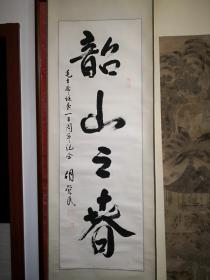 韶山之春
毛主席诞辰一百周年纪念